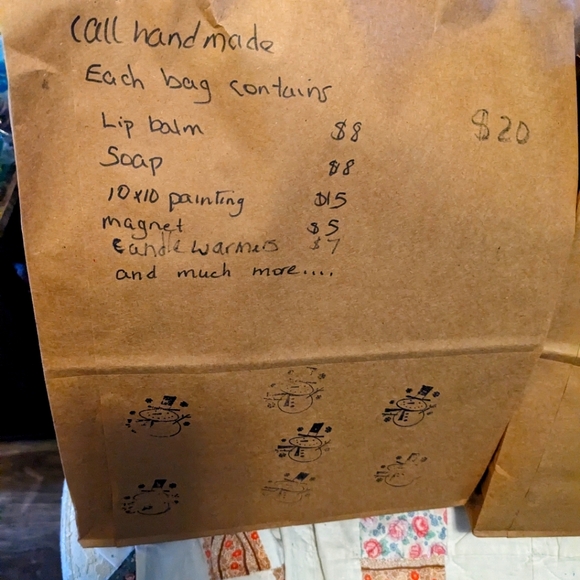 (all handmade
Each bag contains
Lip balm $8 $20
Soap $8
10x10 painting $15
magnet $5
Candle warmers $7
and much more....